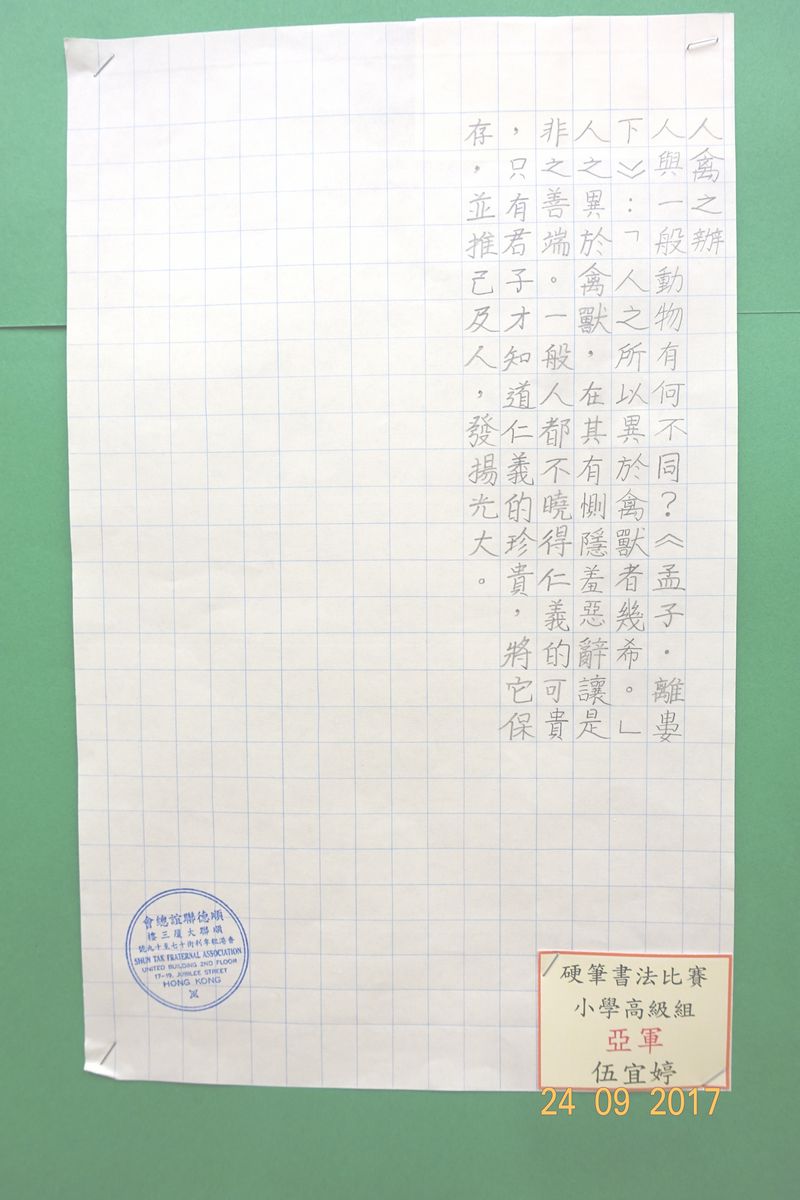 人禽之辦
人與一般動物有何不同？《孟子．離婁
下》：「人之所以異於禽獸者幾希。」
人之異於禽獸，在其有惻隱羞惡辭讓是
非之善端。一般人都不曉得仁義的可貴
，只有君子才知道仁義的珍貴，將它保
存，並推己及人，發揚光大。
順德聯誼總會
順聯大廈三樓
香港租庇利街十七至十九號
SHUN TAK FRATERNAL ASSOCIATION
UNITED BUILDING 2ND FLOOR
17-19, JUBILEE STREET
HONG KONG
硬筆書法比賽
小學高級組
亞軍
伍宜婷
24 09 2017